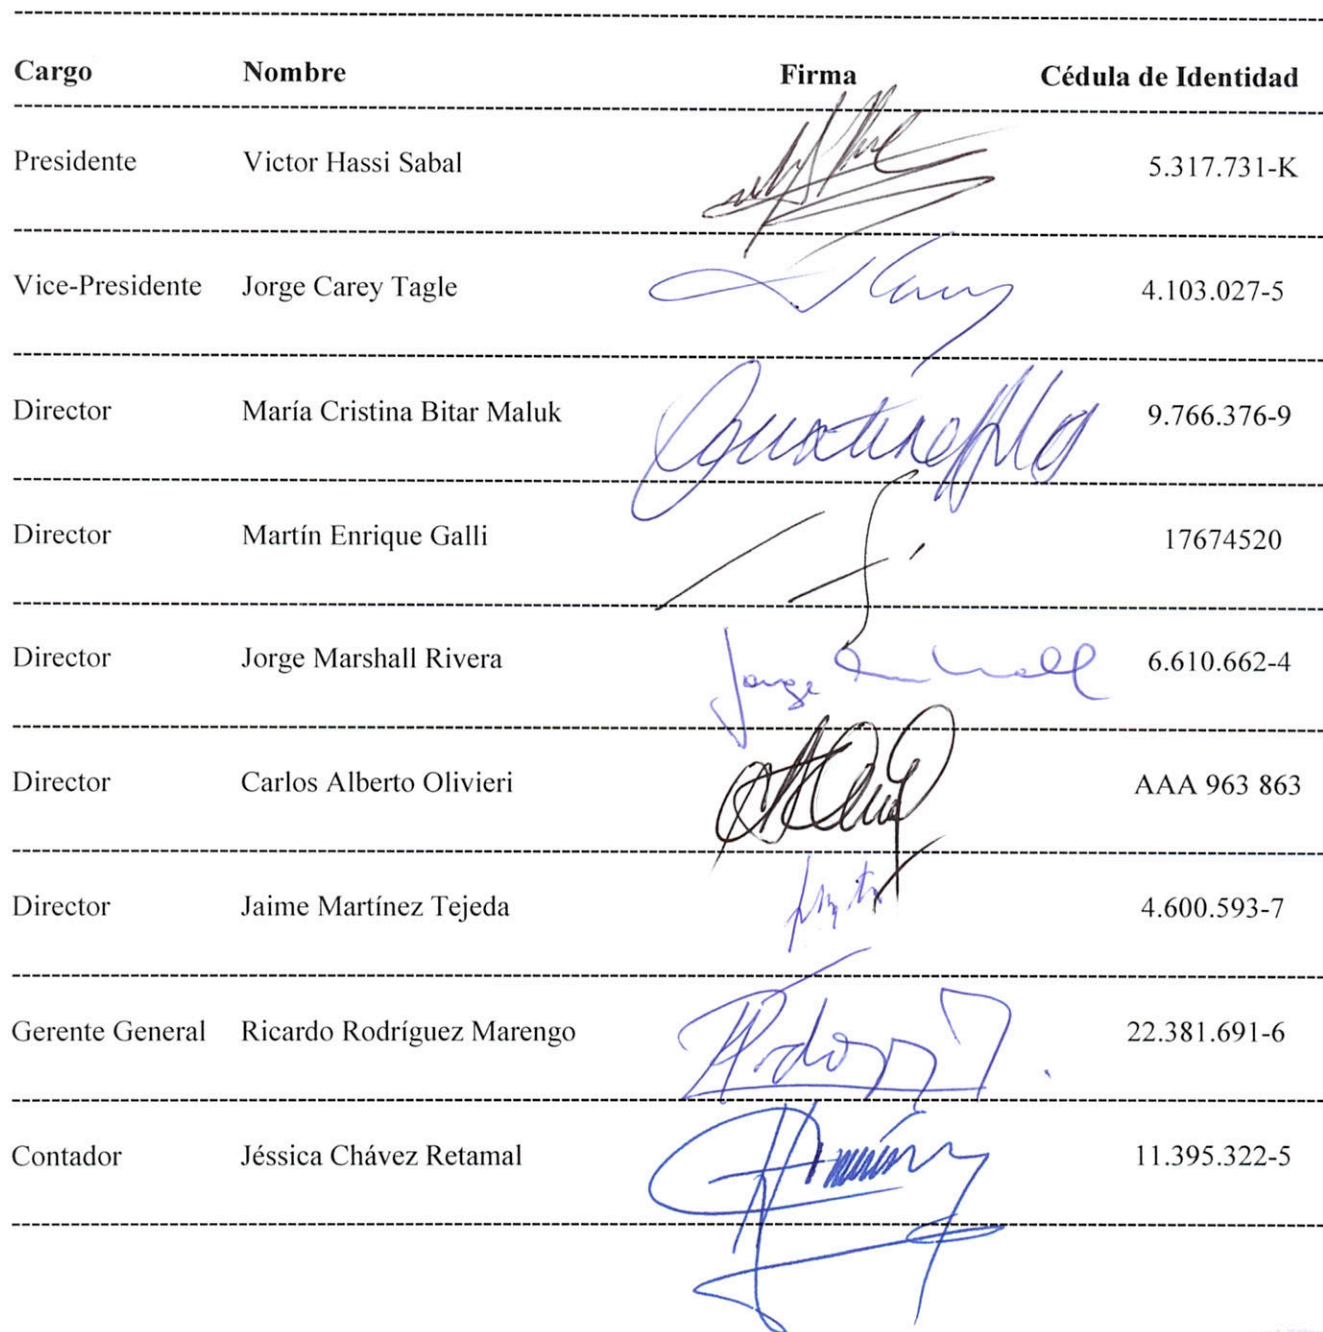 Cargo Nombre Firma Cédula de Identidad
Presidente Victor Hassi Sabal 5.317.731-K
Vice-Presidente Jorge Carey Tagle 4.103.027-5
Director María Cristina Bitar Maluk 9.766.376-9
Director Martín Enrique Galli 17674520
Director Jorge Marshall Rivera 6.610.662-4
Director Carlos Alberto Olivieri AAA 963 863
Director Jaime Martínez Tejeda 4.600.593-7
Gerente General Ricardo Rodríguez Marengo 22.381.691-6
Contador Jéssica Chávez Retamal 11.395.322-5